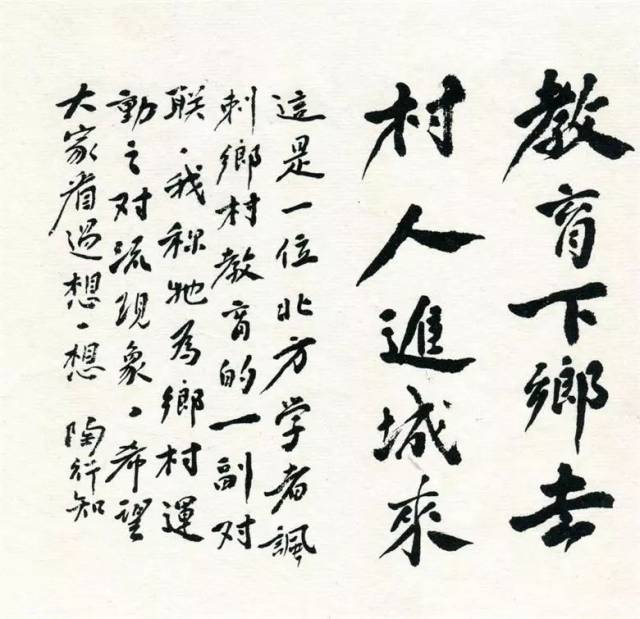 教育下鄉去
村人進城來
這是一位北方学者諷
刺鄉村教育的一副对
联，我称牠為鄉村運
動之对流現象，希望
大家看过想一想 陶行知